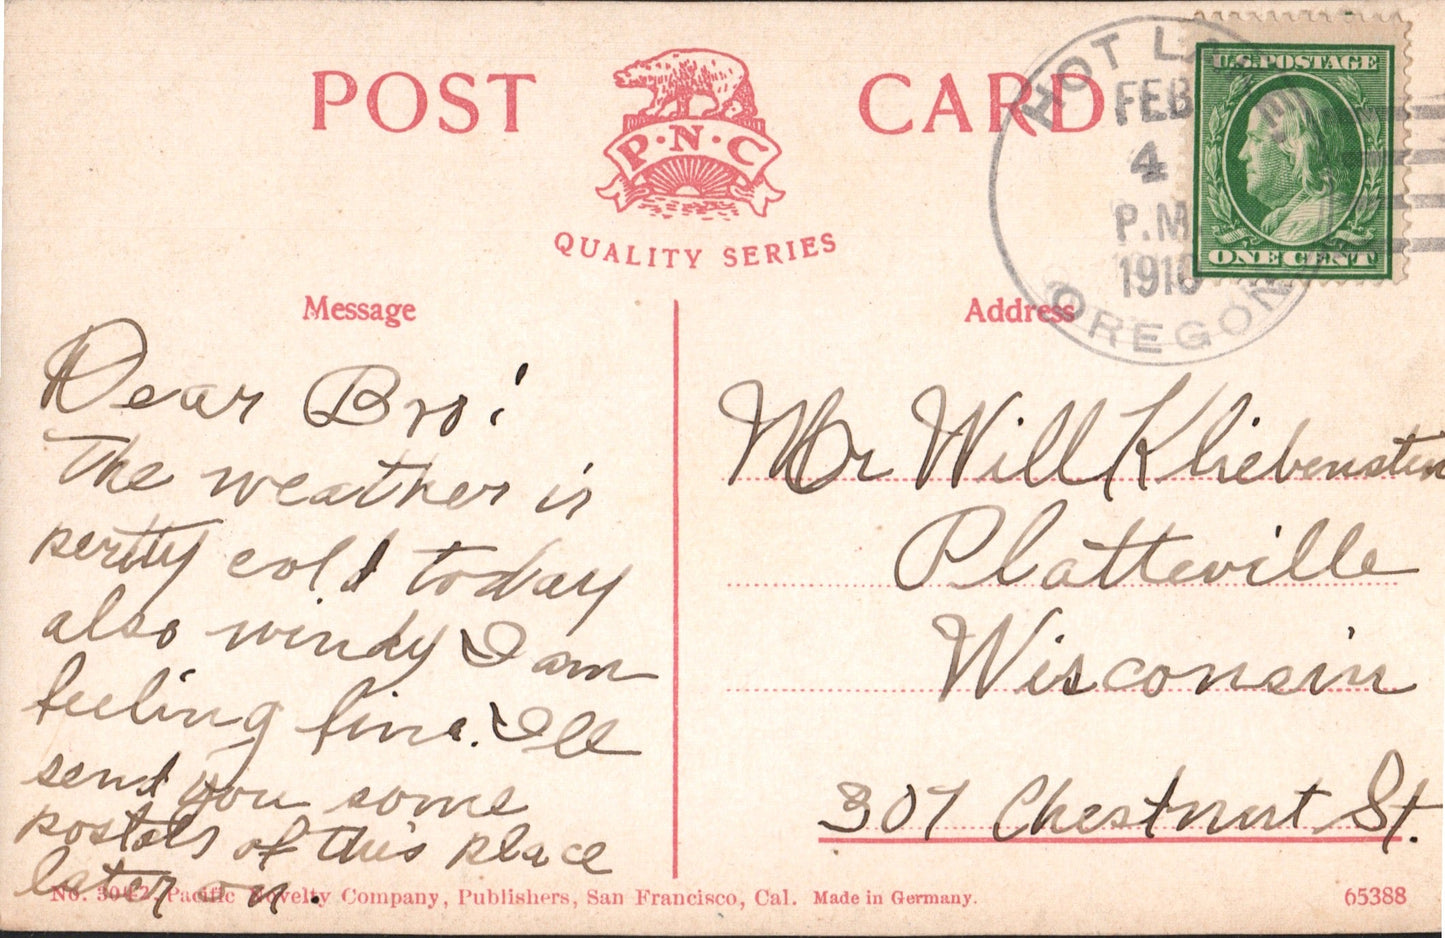 POST CARD
P·N·C
QUALITY SERIES
HOT LAKE
FEB
4
P.M
1910
OREGON
U.S. POSTAGE
ONE CENT
Message
Address
Dear Bro!
The weather is
pertty cold today
also windy I am
feeling fine. I'll
send you some
postals of this place
later on.
Mr Will Kliebenstein
Platteville
Wisconsin
307 Chestnut St.
Pacific Novelty Company, Publishers, San Francisco, Cal. Made in Germany.
65388